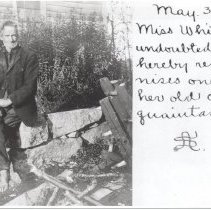 May 3
Miss Whi
undoubted
hereby re
nises on
her old a
quaintan